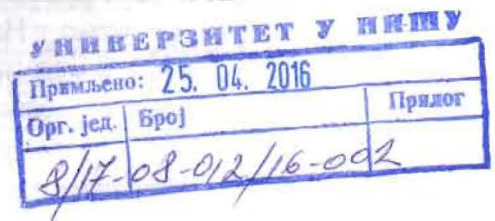 УНИВЕРЗИТЕТ У НИШУ
Примљено: 25. 04. 2016
Орг. јед. Број Прилог
8/17-08-012/16-002